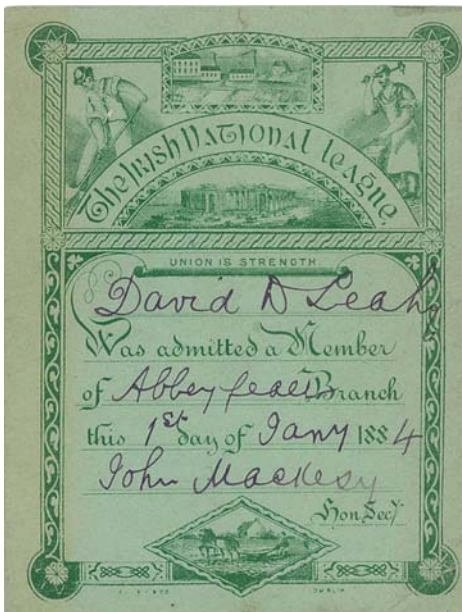 The Irish National League.
UNION IS STRENGTH.
David D Leahy
Was admitted a Member
of Abbeyfeale Branch
this 1st day of Jany 1884
John Mackesy
Hon. Secy.
DUBLIN